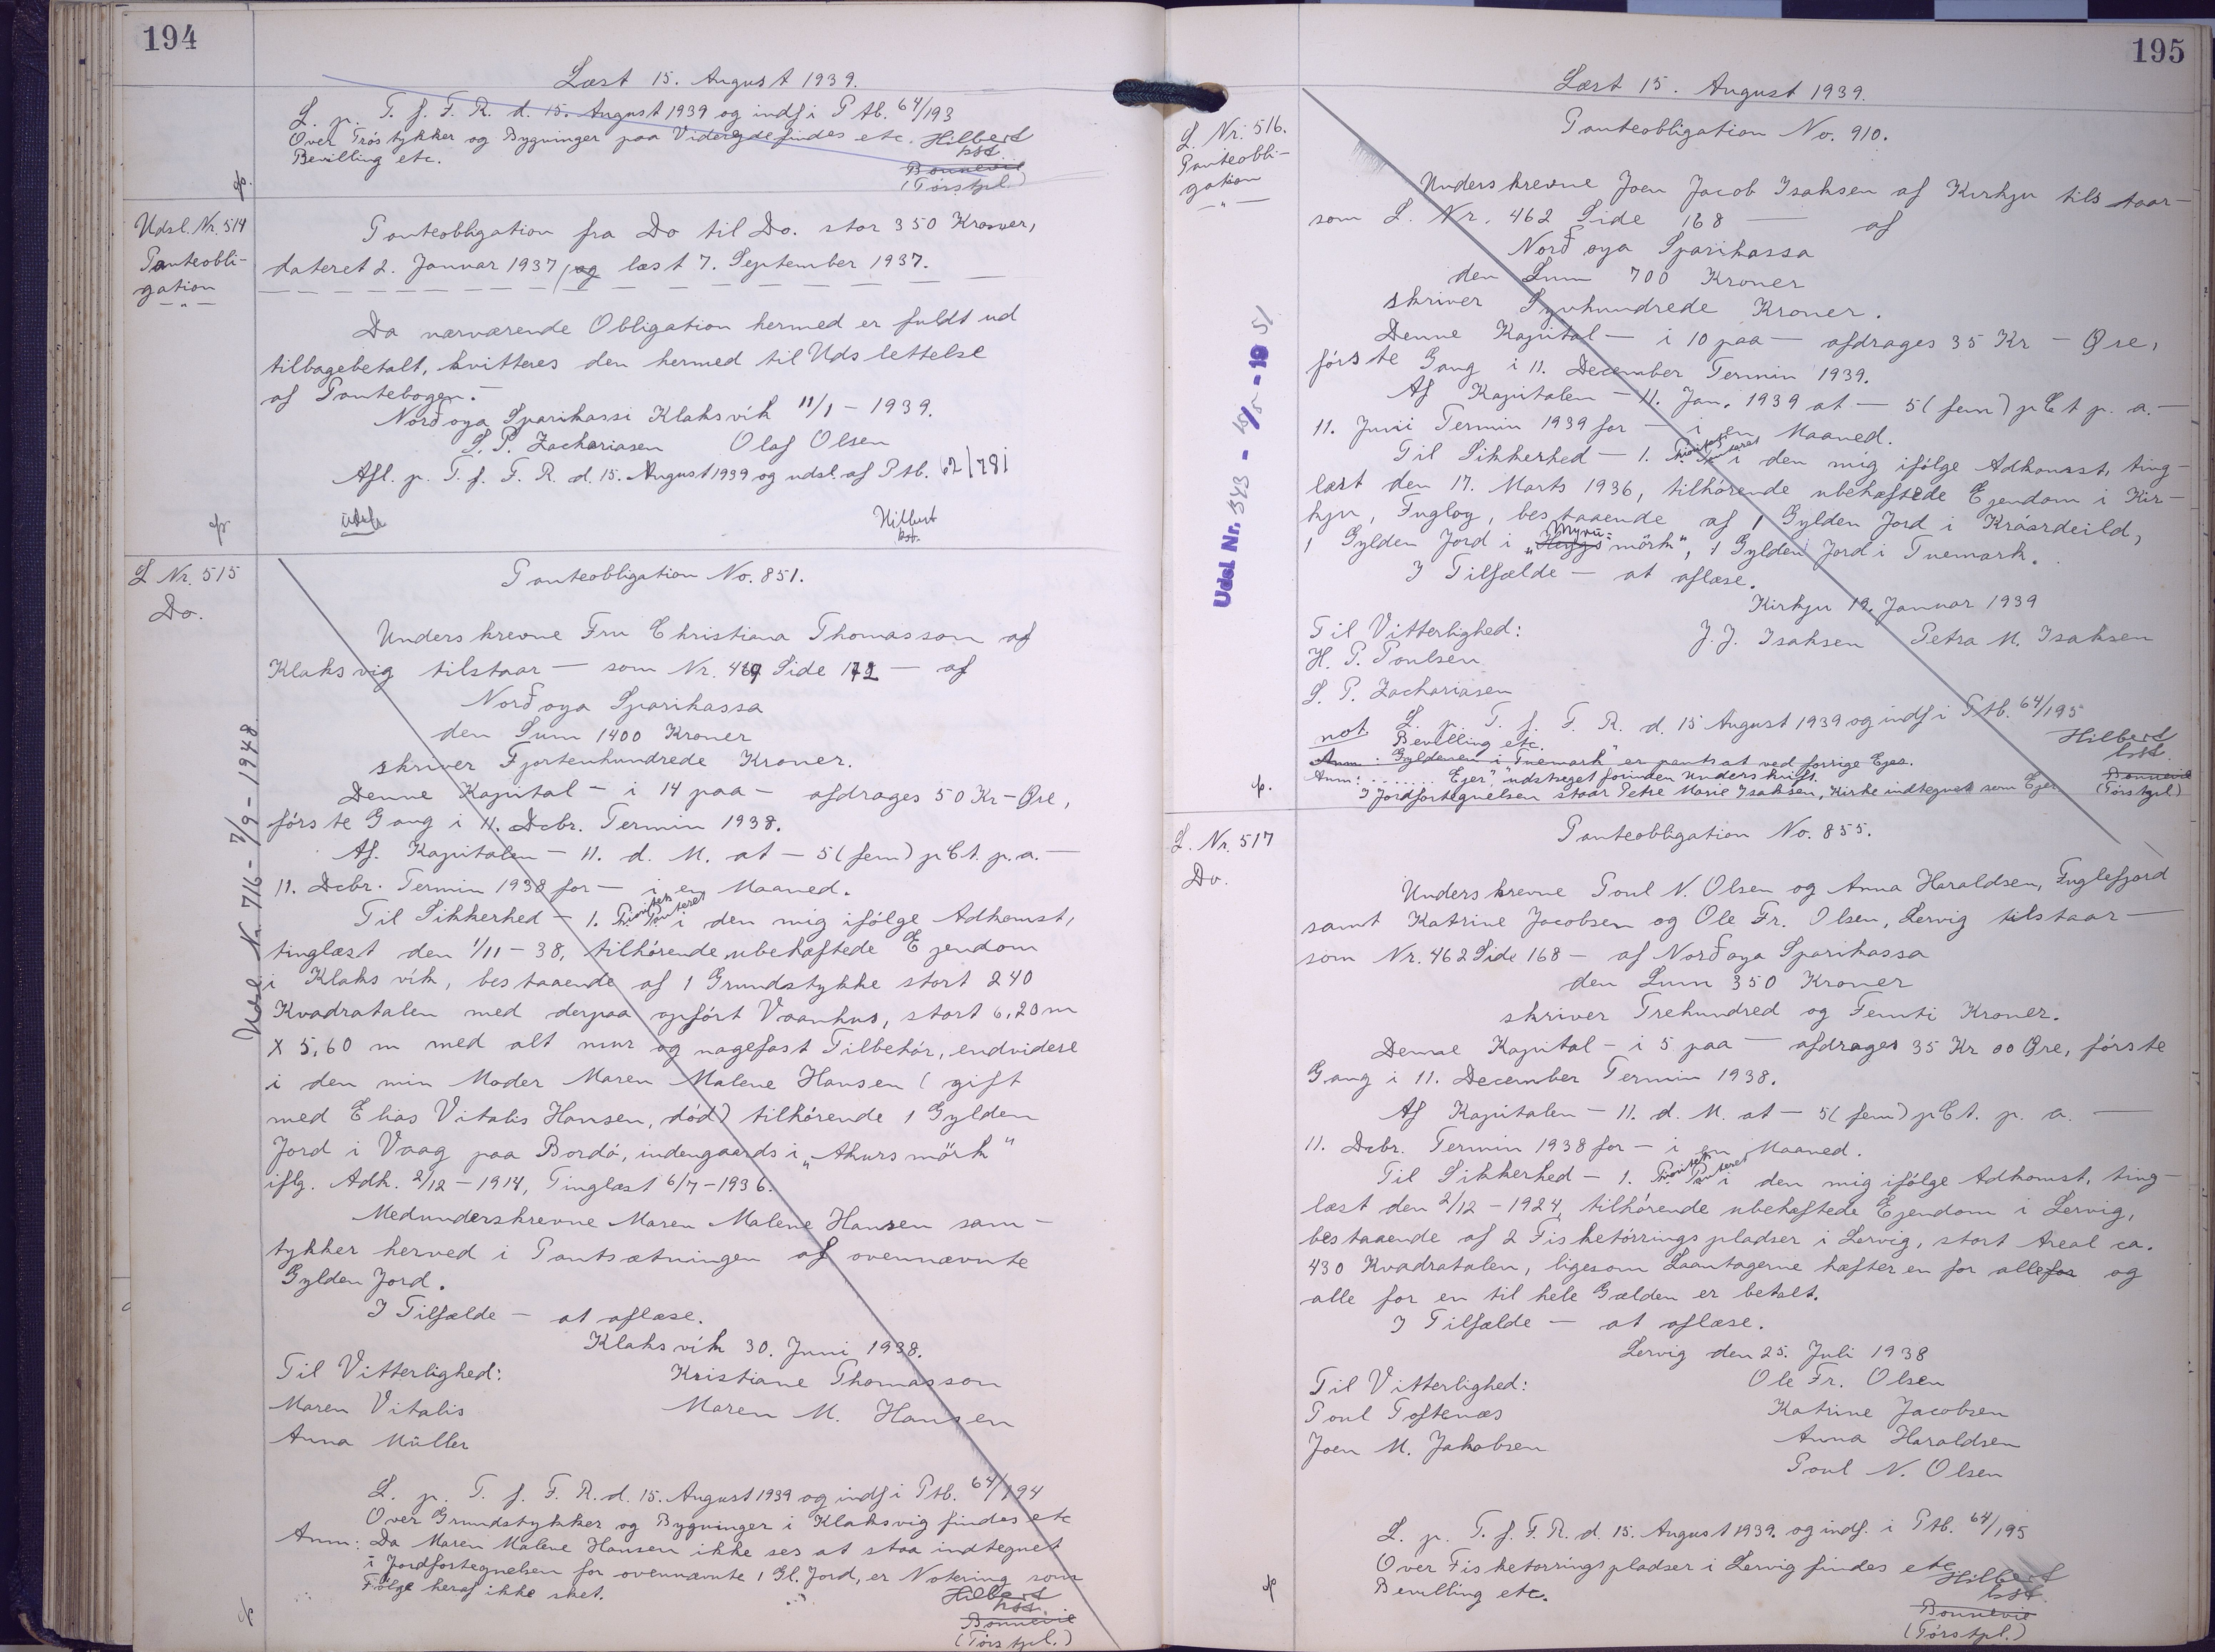 194
Læst 15. August 1939.
L. p. T. f. F. R. d. 15. August 1939 og indf i Ptb. 64/193
Over Tröstykker og Bygninger paa Videreide findes etc. Hilbert
Bevilling etc.
hst.
Bonnevie
(Törstpl.)
Udsl. Nr. 514
Panteobli-
gation
— " —
Panteobligation fra Do til Do. stor 350 Kroner,
dateret 2. Januar 1937, og læst 7. September 1937.
Da nærværende Obligation hermed er fuldt ud
tilbagebetalt, kvitteres den hermed til Udslettelse
af Pantebogen.
Norðoya Sparikassi Klaksvík 11/1 - 1939.
S. P. Zachariasen Olaf Olsen
Afl. p. T. f. F. R. d. 15. August 1939 og udsl. af Ptb. 62/781
Hilbert
hst.
L Nr. 515
Do.
Panteobligation No. 851.
Underskrevne Fru Christiana Thomasson af
Klaksvig tilstaar — som Nr. 467 Side 172 — af
Norðoya Sparikassa
den Sum 1400 Kroner
skriver Fjortenhundrede Kroner.
Denne Kapital — i 14 paa — afdrages 50 Kr — Øre,
förste Gang i 11. Dcbr. Termin 1938.
Af. Kapitalen — 11. d. M. at — 5 (fem) pCt. p.a. —
11. Dcbr. Termin 1938 for — i en Maaned.
Til Sikkerhed — 1. Prioritets Panteret i den mig ifölge Adkomst,
tinglæst den 1/11 - 38, tilhörende ubehæftede Ejendom
i Klaksvík, bestaaende af 1 Grundstykke stort 240
Kvadratalen med derpaa opfört Vaanhus, stort 6,20 m
x 5,60 m med alt mur og nagefast Tilbehör, endvidere
i den min Moder Maren Malene Hansen (gift
med Elias Vitalis Hansen, död) tilhörende 1 Gylden
Jord i Vaag paa Bordö, indengaards i „Akursmörk"
iflg. Adk. 2/12 - 1914, Tinglæst 6/7 - 1936.
Medunderskrevne Maren Malene Hansen sam-
tykker herved i Pantsætningen af ovennævnte
Gylden Jord.
I Tilfælde — at aflæse.
Klaksvík 30. Juni 1938.
Til Vitterlighed: Kristiane Thomasson
Maren Vitalis Maren M. Hansen
Anna Müller
L. p. T. f. F. R. d. 15. August 1939 og indf i Ptb. 64/194
Over Grundstykker og Bygninger i Klaksvig findes etc
Anm: Da Maren Malene Hansen ikke ses at staa indtegnet
i Jordfortegnelsen for ovennævnte 1 Gl. Jord, er Notering som
Fölge heraf ikke sket.
Hilbert
hst.
Bonnevie
(Törstpl.)
Udsl. Nr. 716 - 7/9 - 1948.
195
Læst 15. August 1939.
L. Nr. 516.
Panteobli-
gation
— " —
Panteobligation No. 910.
Underskrevne Joen Jacob Isaksen af Kirkju tilstaar —
som L. Nr. 462 Side 168 — af
Norðoya Sparikassa
den Sum 700 Kroner
skriver Syvhundrede Kroner.
Denne Kapital — i 10 paa — afdrages 35 Kr — Øre,
förste Gang i 11. December Termin 1939.
Af Kapitalen — 11. Jan. 1939 at — 5 (fem) pCt p. a. —
11. Juni Termin 1939 for — i en Maaned.
Til Sikkerhed — 1. Prioritets Panteret i den mig ifölge Adkomst, ting-
læst den 17. Marts 1936, tilhörende ubehæftede Ejendom i Kir-
kju, Fugloy, bestaaende af 1 Gylden Jord i Kráardeild,
1 Gylden Jord i „Myru-mörk", 1 Gylden Jord i Tuemark.
I Tilfælde — at aflæse.
Kirkju 19. Januar 1939
Til Vitterlighed: J. J. Isaksen Petra M. Isaksen
H. P. Poulsen
S. P. Zachariasen
L. p. T. f. F. R. d. 15 August 1939 og indf i Ptb. 64/195
not Bevilling etc.
Hilbert
hst.
Anm: Gyldenen i „Tuemark" er pantsat ved forrige Ejer.
Anm: ........ Ejer" udstreget forinden Underskrift.
I Jordfortegnelsen staar Petre Marie Isaksen, Kirke indtegnet som Ejer
Bonnevie
(Törstpl.)
Udsl Nr. 343 - 15/5 - 19 51
L. Nr. 517
Do.
Panteobligation No. 855.
Underskrevne Poul N. Olsen og Anna Haraldsen, Fuglefjord
samt Katrine Jacobsen og Ole Fr. Olsen, Lervig tilstaar —
som Nr. 462 Side 168 — af Norðoya Sparikassa
den Sum 350 Kroner
skriver Trehundred og Femti Kroner.
Denne Kapital — i 5 paa — afdrages 35 Kr 00 Øre, förste
Gang i 11. December Termin 1938.
Af Kapitalen — 11. d. M. at — 5 (fem) pCt. p. a. —
11. Dcbr. Termin 1938 for — i en Maaned.
Til Sikkerhed — 1. Prioritets Panteret i den mig ifölge Adkomst, ting-
læst den 2/12 - 1924, tilhörende ubehæftede Ejendom i Lervig,
bestaaende af 2 Fisketörringspladser i Lervig, stort Areal ca.
430 Kvadratalen, ligesom Laantagerne hæfter en for alle for og
alle for en til hele Gælden er betalt.
I Tilfælde — at aflæse.
Lervig den 25. Juli 1938
Til Vitterlighed: Ole Fr. Olsen
Poul Toftenæs Katrine Jacobsen
Joen M. Jakobsen Anna Haraldsen
Poul N. Olsen
L. p. T. f. F. R. d. 15. August 1939. og indf. i Ptb. 64/195
Over Fisketörringspladser i Lervig findes etc
Bevilling etc.
Hilbert
hst.
Bonnevie
(Törstpl.)